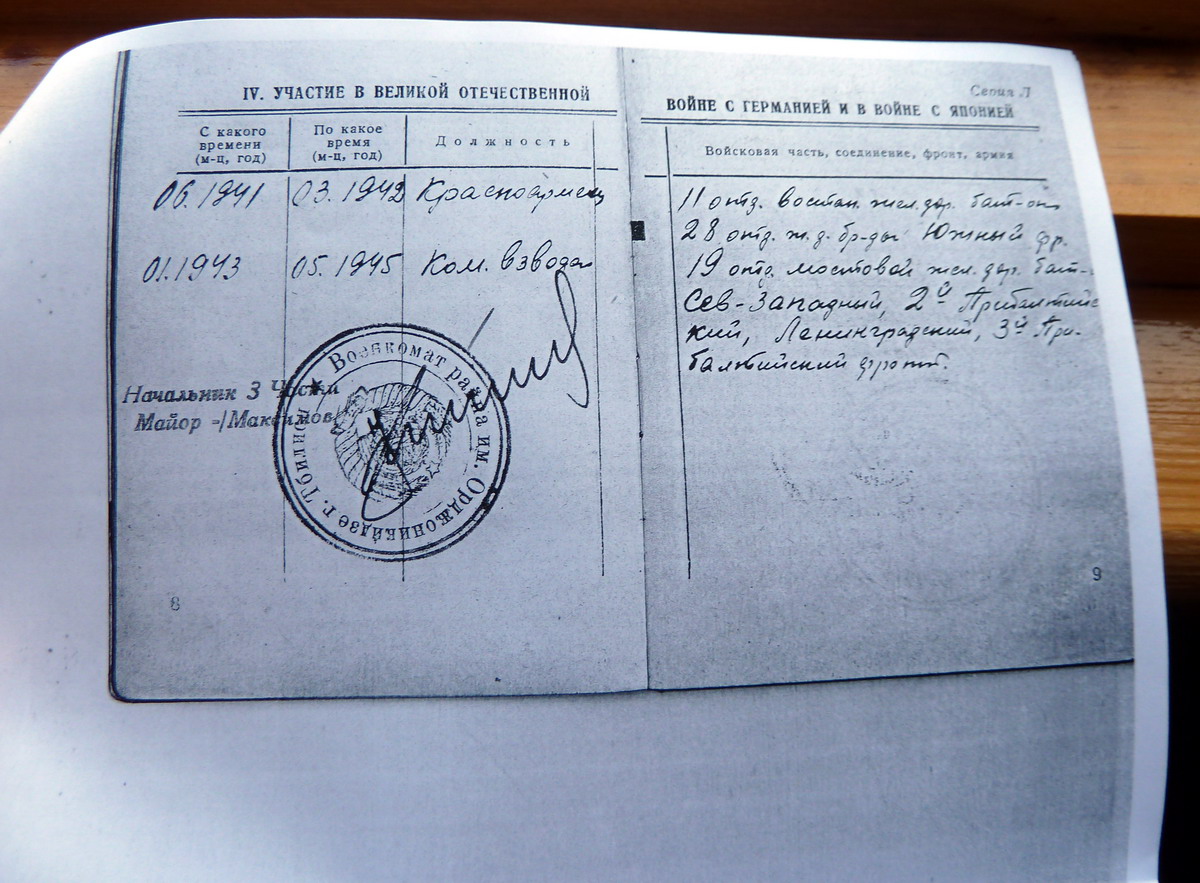 IV. УЧАСТИЕ В ВЕЛИКОЙ ОТЕЧЕСТВЕННОЙ
С какого времени (м-ц, год)
По какое время (м-ц, год)
Должность
06.1941 03.1942 Красноармеец
01.1943 05.1945 Ком. взвода
Начальник 3 Части
Майор -/Максимов/
Военкомат района им. Орджоникидзе г. Тбилиси
8
Серия Л
ВОЙНЕ С ГЕРМАНИЕЙ И В ВОЙНЕ С ЯПОНИЕЙ
Войсковая часть, соединение, фронт, армия
11 отд. восстан. жел. дор. бат-он
28 отд. ж.д. бр-ды Южный фр.
19 отд. мостовой жел. дор. бат-
Сев-Западный, 2й Прибалтийс
кий, Ленинградский, 3й При-
балтийский фронт.
9